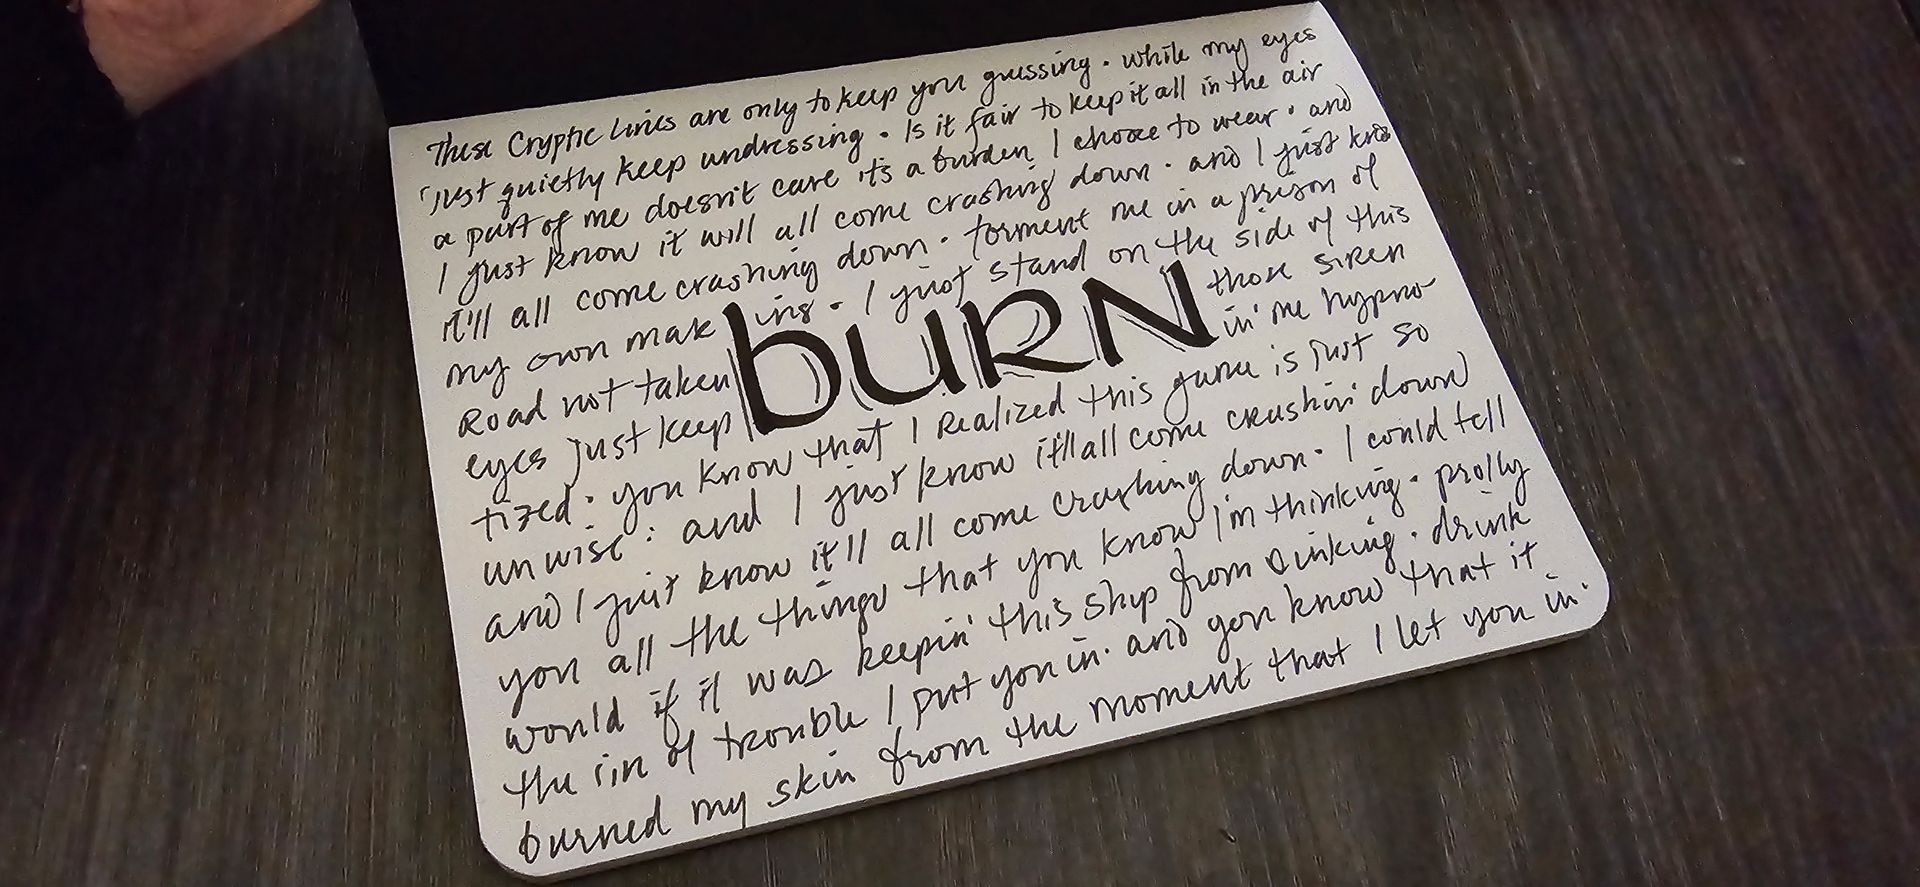 These Cryptic Lines are only to keep you guessing. while my eyes
just quietly keep undressing. Is it fair to keep it all in the air
a part of me doesn't care it's a burden I choose to wear. and
I just know it will all come crashing down. and I just know
it'll all come crashing down. torment me in a prison of
my own making. I just stand on the side of this
Road not taken those siren
burn
eyes just keep in' me hypno-
tized. you know that I Realized this game is just so
unwise: and I just know it'll all come crashin' down
and I just know it'll all come crashing down. I could tell
you all the things that you know I'm thinking. prolly
would if it was keepin' this ship from sinking. drink
the sin of trouble I put you in. and you know that it
burned my skin from the moment that I let you in.